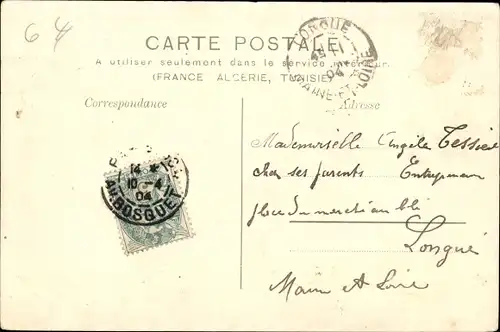 64
CARTE POSTALE
A utiliser seulement dans le service intérieur
(FRANCE ALGERIE, TUNISIE)
LONGUÉ
MAINE-ET-LOIRE
Correspondance
Adresse
14 *
10 - 4
04
AU. BOSQUET
Mademoiselle Angèle Tessier
chez ses parents Entrepreneur
place du marché au blé
Longué
Maine et Loire